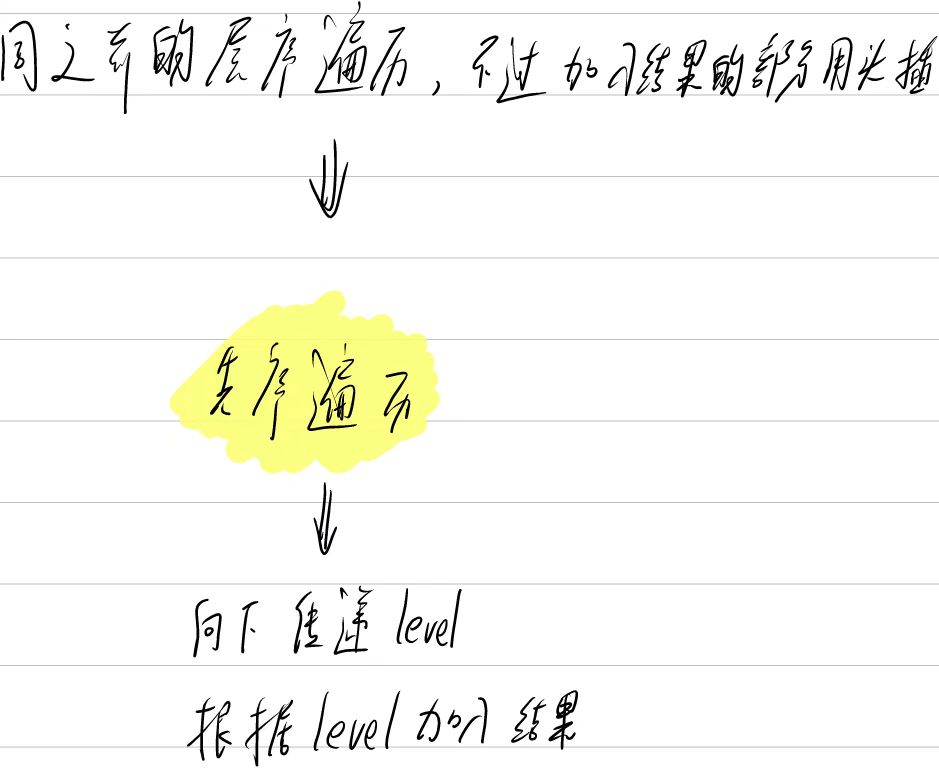 同之前的层序遍历，不过加入结果的部分用头插
先序遍历
向下传递level
根据level加入结果